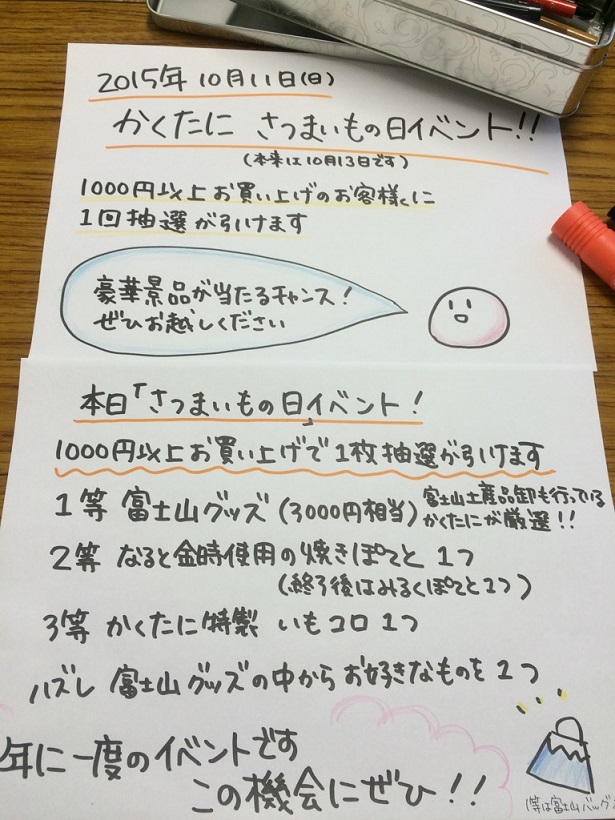 2015年10月11日(日)
かくたに さつまいもの日イベント!!
(本来は10月13日です)
1000円以上お買い上げのお客様に
1回抽選が引けます
豪華景品が当たるチャンス!
ぜひお越しください
本日「さつまいもの日」イベント!
1000円以上お買い上げで1枚抽選が引けます
1等 富士山グッズ (3000円相当) 富士山土産品卸も行っている
かくたにが厳選!!
2等 なると金時使用の焼きぽてと 1つ
(終了後はみるくぽてと1つ)
3等 かくたに特製 いもコロ 1つ
ハズレ 富士山グッズの中からお好きなものを1つ
年に一度のイベントです
この機会にぜひ!!
1等は富士山バッグ